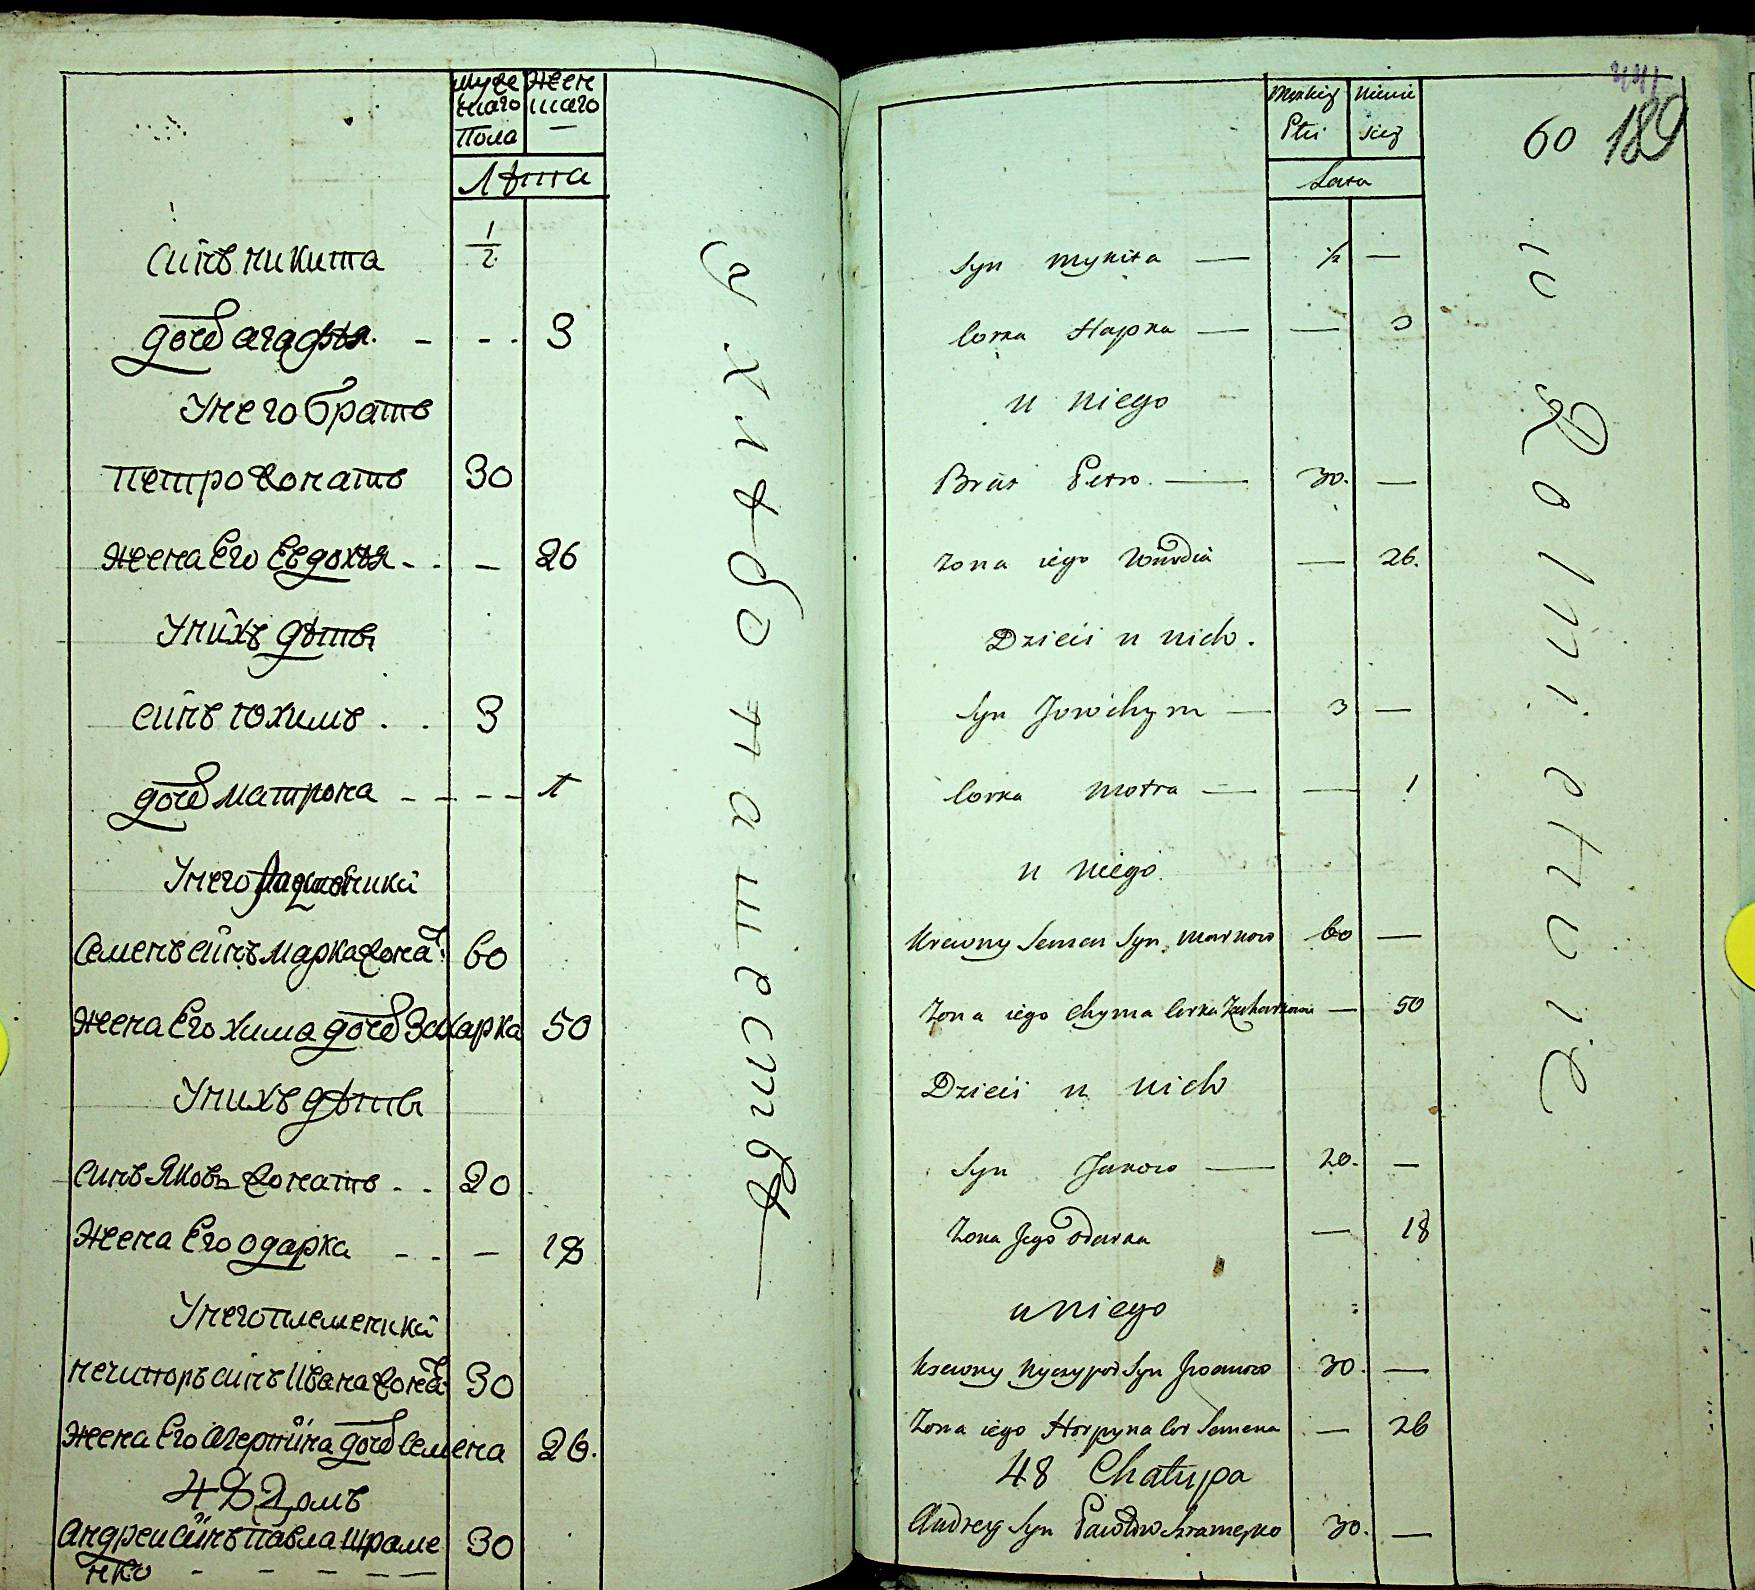 Муже
ш̃аго
Пола
Жен
ш̃аго
Лѣта
Синъ никита 1/2
дочь агафия. - - - 3
У него братъ
петро конатъ 30
жена Его Евдохия - . - 26
У нихъ дѣти
синъ юхимъ . . 3
дочь матрона - - - - 1
У него
Семенъ синъ марка кона͠т 60
жена Его хима дочь Захарка 50
У нихъ дѣти
синъ Яковъ конатъ . . 20
жена Его одарка - . - 18
У него племеникй
нечипоръ синъ Ивана кона͠т 30
жена Его агерпина дочь Семена 26.
48 Домъ
андреи синъ павла шраме 30
нко - - - - -
ухлѣбопашествѣ
Męzkiey
Płci
Niewie
sciey
Lata
441
60 189
Syn Mykita — 1/2 —
Corka Hapka — — 3
u niego
Brat Petro. — 30. —
Zona iego — 26.
Dzieci u nich.
Syn Jowchym — 3 —
Corka Motra — — 1
u niego
Krewny Semen Syn Markow 60 —
Zona iego Chyma Corka Zacharkowa — 50
Dzieci u nich
Syn Jakow — 20. —
Zona Jego Odarka — 18
u niego
krewny Nyczypor Syn Jwanow 30. —
Zona iego Horpyna Cor Semena — 26
48 Chałupa
Andrey Syn Pawłow Szramenko 30. —
w Rolnictwie